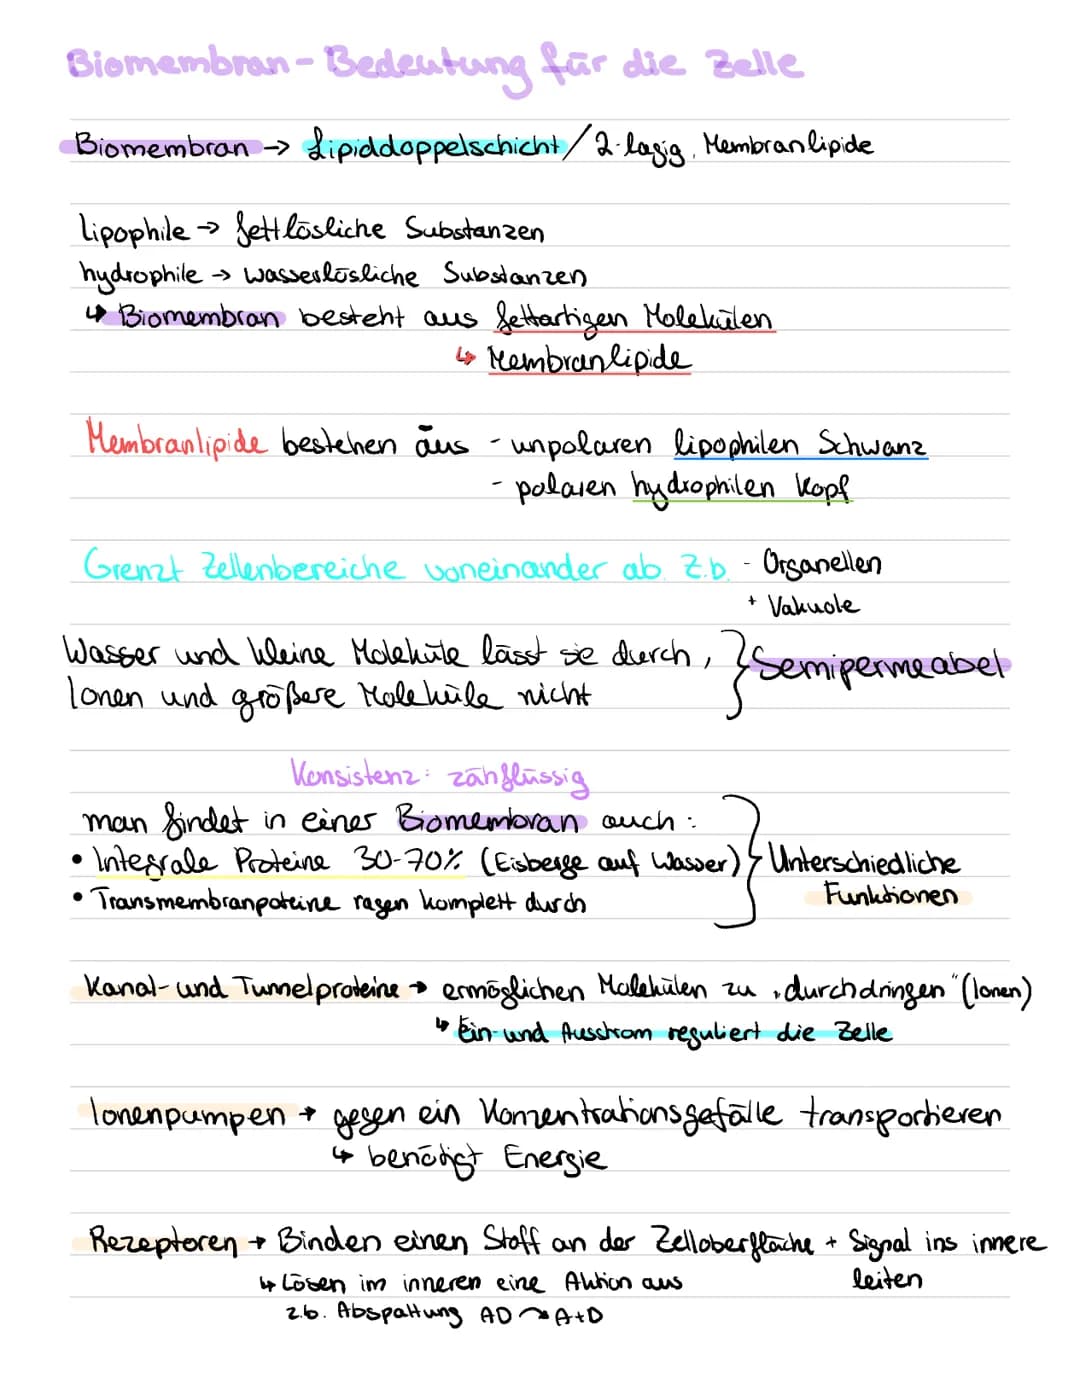 Biomembran - Bedeutung für die Zelle
Biomembran → Lipiddoppelschicht / 2-lagig, Membranlipide
lipophile → fettlösliche Substanzen
hydrophile → wasserlösliche Substanzen
↳ Biomembran besteht aus fettartigen Molekülen
↳ Membranlipide
Membranlipide bestehen aus - unpolaren lipophilen Schwanz
- polaren hydrophilen Kopf
Grenzt Zellenbereiche voneinander ab. Z.b. - Organellen
+ Vakuole
Wasser und kleine Moleküle lässt sie durch,
Ionen und größere Moleküle nicht } Semipermeabel
Konsistenz: zähflüssig
man findet in einer Biomembran auch:
• Integrale Proteine 30-70% (Eisberge auf Wasser) } Unterschiedliche
• Transmembranpoteine ragen komplett durch Funktionen
Kanal- und Tunnelproteine → ermöglichen Molekülen zu „durchdringen" (Ionen)
↳ Ein- und Ausstrom reguliert die Zelle
Ionenpumpen → gegen ein Konzentrationsgefälle transportieren
↳ benötigt Energie
Rezeptoren → Binden einen Stoff an der Zelloberfläche + Signal ins innere
leiten
↳ Lösen im inneren eine Aktion aus
z.b. Abspaltung AD ↷ A+D